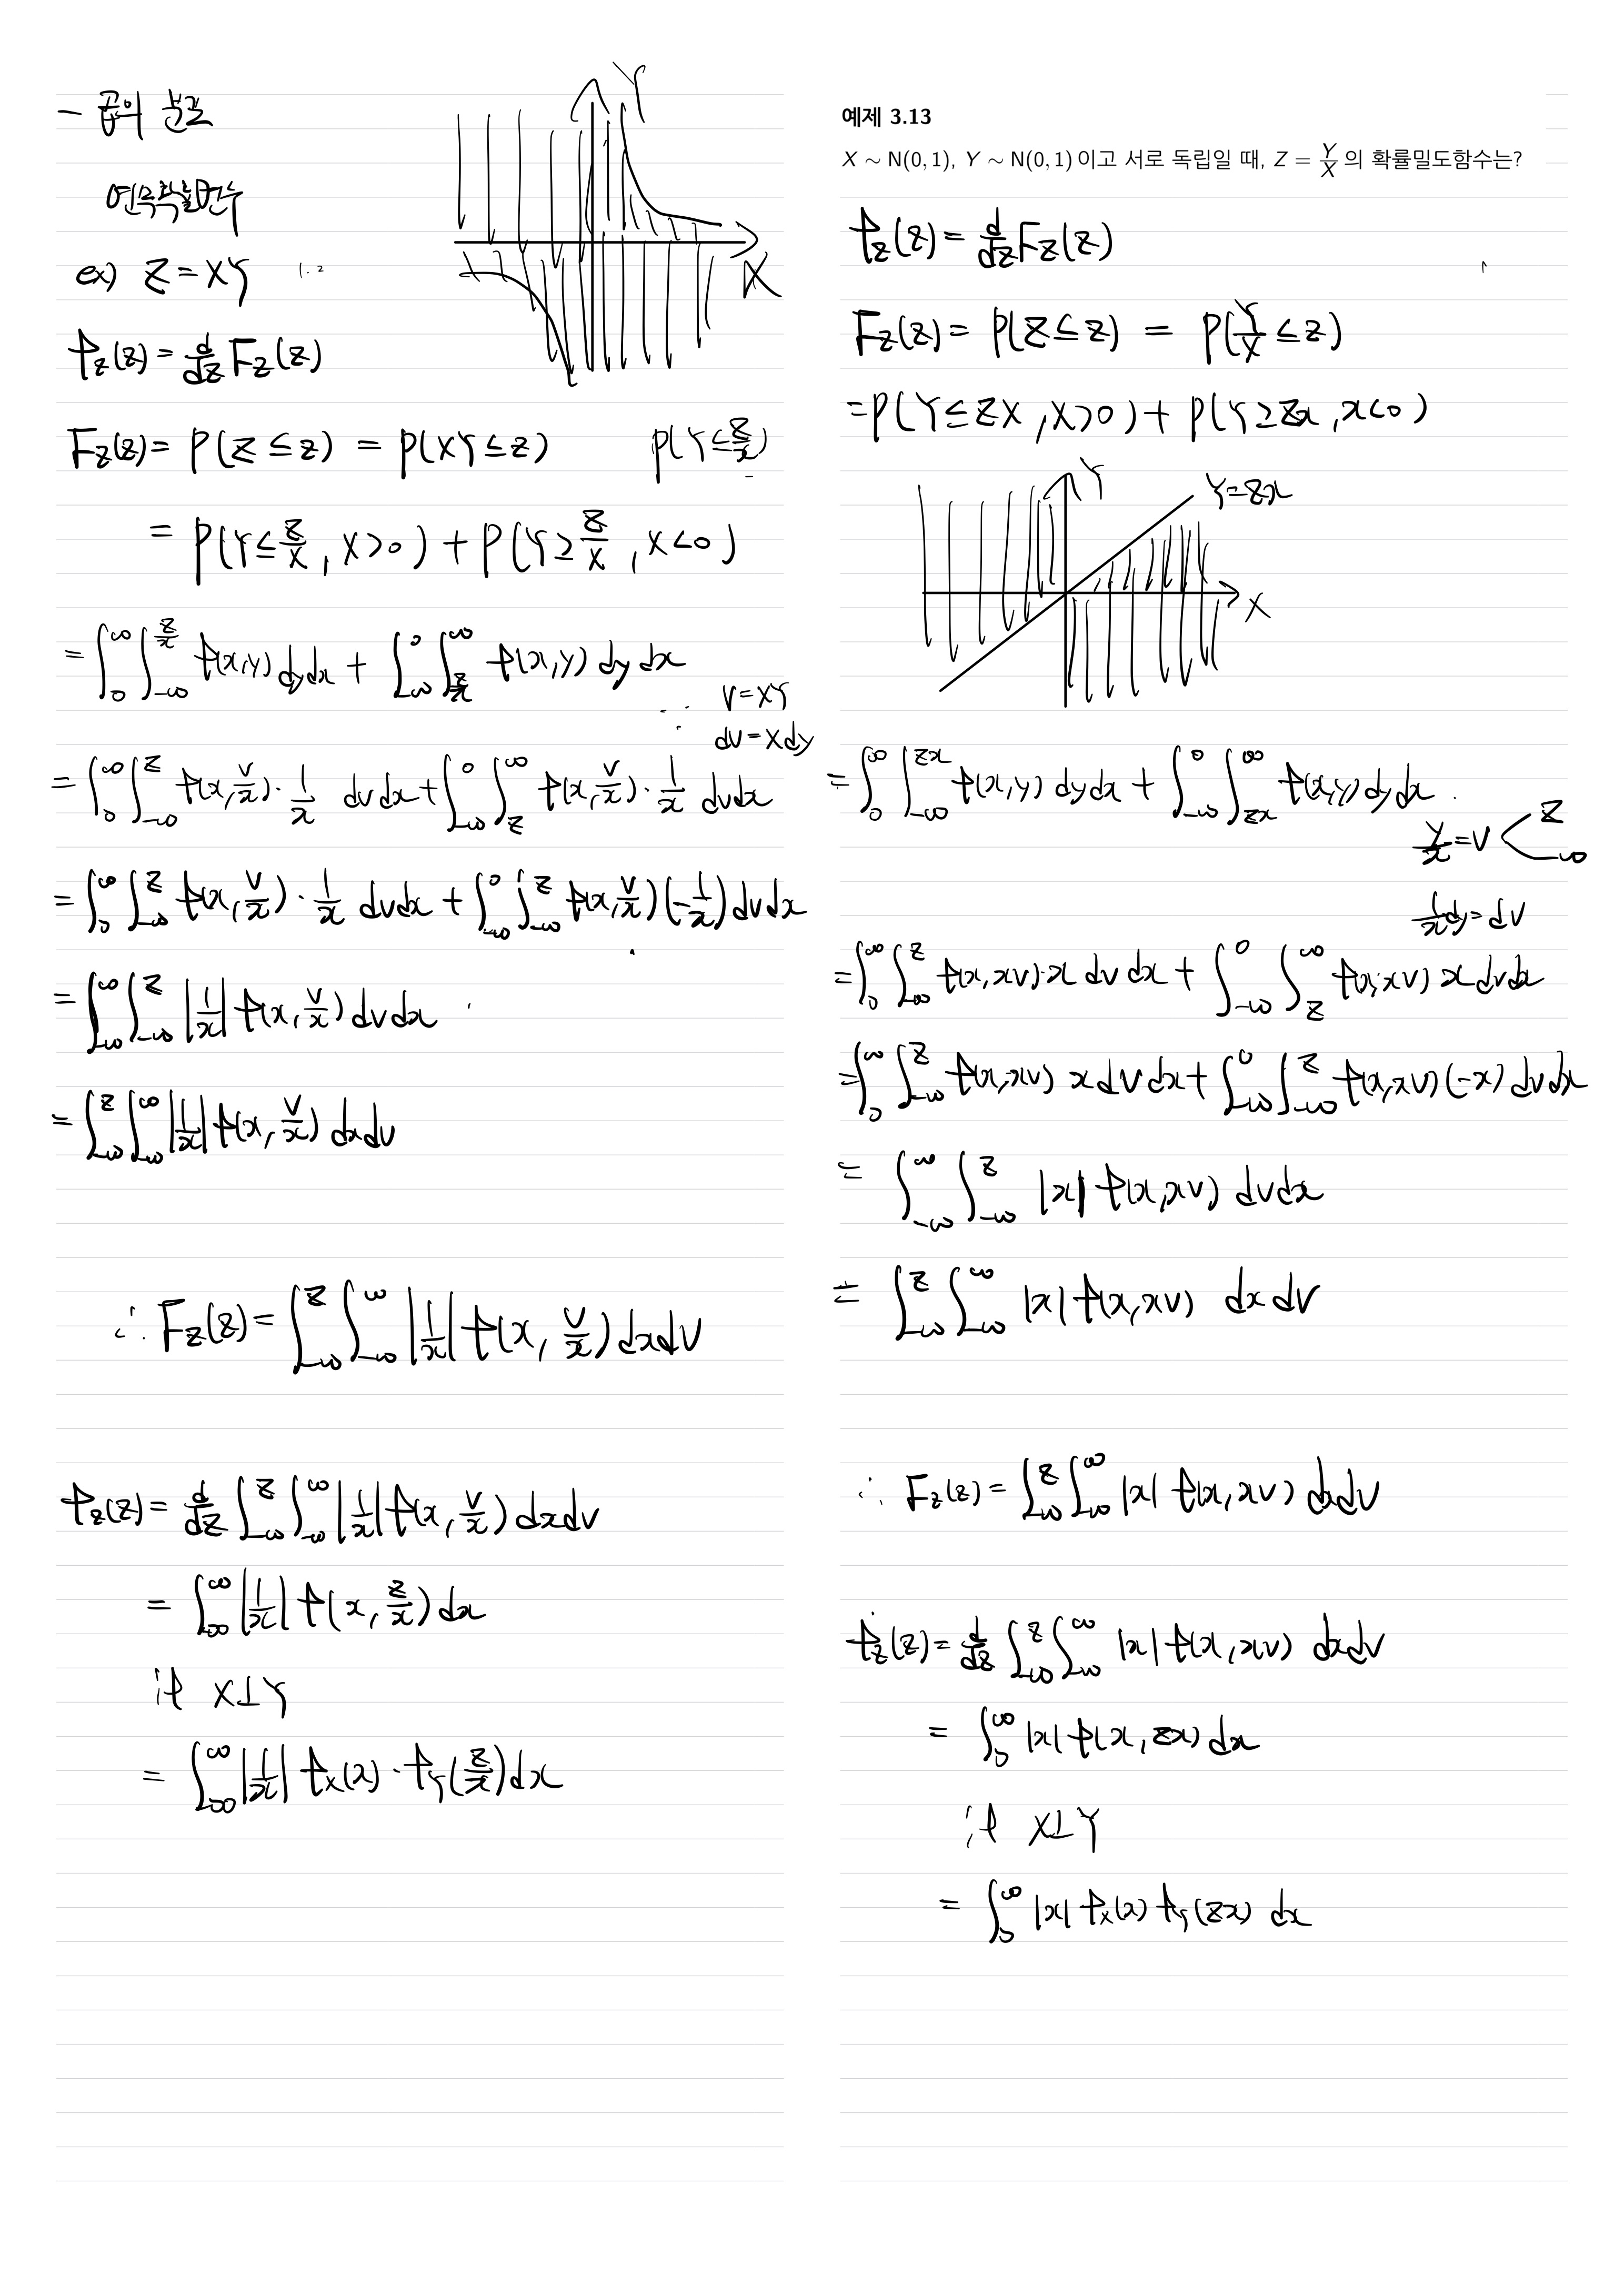 - 곱의 분포
연속확률변수
ex) Z = XY
f_Z(z) = d/dz F_Z(z)
F_Z(z) = P(Z ≤ z) = P(XY ≤ z) P(Y ≤ z/x)
= P(Y ≤ z/X, X>0) + P(Y ≥ z/X, X<0)
= ∫_0^∞ ∫_{-∞}^{z/x} f(x,y) dy dx + ∫_{-∞}^0 ∫_{z/x}^∞ f(x,y) dy dx
V = XY
dv = x dy
= ∫_0^∞ ∫_{-∞}^z f(x, v/x) · 1/x dv dx + ∫_{-∞}^0 ∫_z^∞ f(x, v/x) · 1/x dv dx
= ∫_0^∞ ∫_{-∞}^z f(x, v/x) · 1/x dv dx + ∫_{-∞}^0 ∫_{-∞}^z f(x, v/x) (-1/x) dv dx
= ∫_{-∞}^∞ ∫_{-∞}^z |1/x| f(x, v/x) dv dx
= ∫_{-∞}^z ∫_{-∞}^∞ |1/x| f(x, v/x) dx dv
∴ F_Z(z) = ∫_{-∞}^z ∫_{-∞}^∞ |1/x| f(x, v/x) dx dv
f_Z(z) = d/dz ∫_{-∞}^z ∫_{-∞}^∞ |1/x| f(x, v/x) dx dv
= ∫_{-∞}^∞ |1/x| f(x, z/x) dx
if X⊥Y
= ∫_{-∞}^∞ |1/x| f_X(x) · f_Y(z/x) dx
Y
X
예제 3.13
X ~ N(0, 1), Y ~ N(0, 1)이고 서로 독립일 때, Z = Y/X 의 확률밀도함수는?
f_Z(z) = d/dz F_Z(z)
F_Z(z) = P(Z ≤ z) = P(Y/X ≤ z)
= P(Y ≤ zX, X>0) + P(Y ≥ zx, x<0)
Y
Y = zx
X
= ∫_0^∞ ∫_{-∞}^{zx} f(x,y) dy dx + ∫_{-∞}^0 ∫_{zx}^∞ f(x,y) dy dx
y/x = v < z
-∞
1/x dy = dv
= ∫_0^∞ ∫_{-∞}^z f(x, xv) · x dv dx + ∫_{-∞}^0 ∫_z^∞ f(x, xv) x dv dx
= ∫_0^∞ ∫_{-∞}^z f(x, xv) x dv dx + ∫_{-∞}^0 ∫_{-∞}^z f(x, xv) (-x) dv dx
= ∫_{-∞}^∞ ∫_{-∞}^z |x| f(x, xv) dv dx
= ∫_{-∞}^z ∫_{-∞}^∞ |x| f(x, xv) dx dv
∴ F_Z(z) = ∫_{-∞}^z ∫_{-∞}^∞ |x| f(x, xv) dx dv
f_Z(z) = d/dz ∫_{-∞}^z ∫_{-∞}^∞ |x| f(x, xv) dx dv
= ∫_0^∞ |x| f(x, zx) dx
if X⊥Y
= ∫_0^∞ |x| f_X(x) f_Y(zx) dx